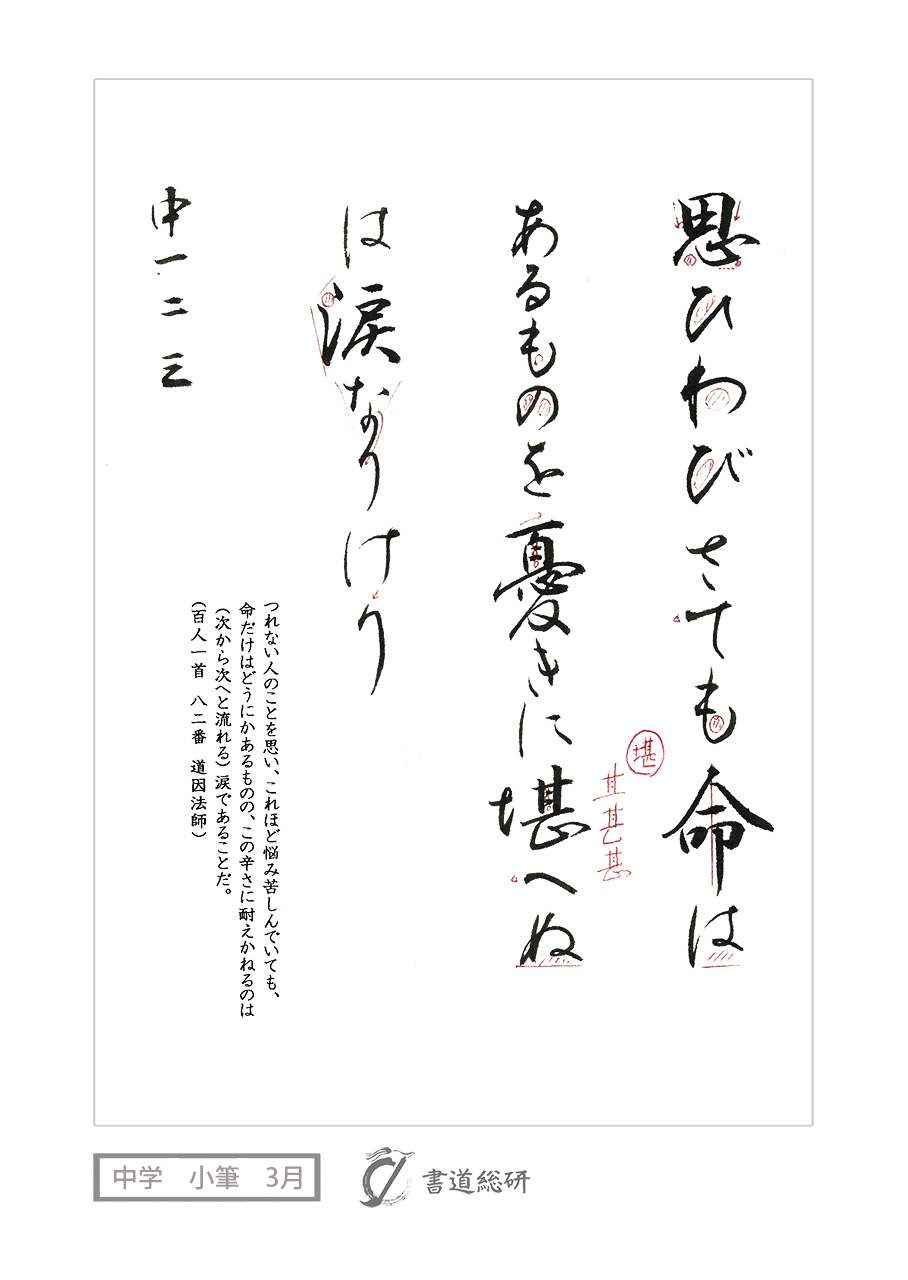 思ひわびさても命は
あるものを憂きに堪へぬ
は涙なりけり
中一二三
堪
つれない人のことを思い、これほど悩み苦しんでいても、
命だけはどうにかあるものの、この辛さに耐えかねるのは
(次から次へと流れる)涙であることだ。
(百人一首 八二番 道因法師)
中学 小筆 3月
書道総研